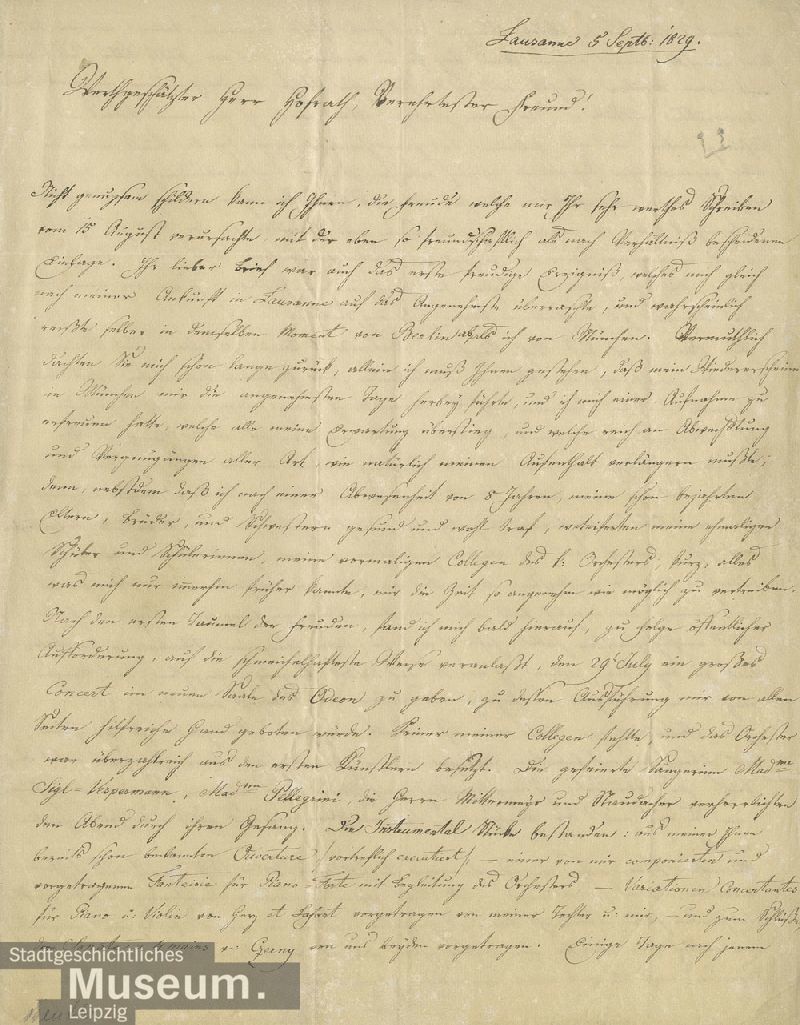 Lausanne 5 Septb: 1829.
Werthgeschätzter Herr Hofrath, Verehrtester Freund!
Nicht genugsam schildern kann ich Ihnen, die Freude welche mir Ihr sehr werthes Schreiben
vom 15 August verursachte mit der eben so freundschaftlich als nach Verhältniß bescheidenen
Einlage. Ihr lieber Brief war auch das erste freudige Ereigniß welches mich gleich
nach meiner Ankunft in Lausanne auf das Angenehmste überraschte, und wahrscheinlich
reißte selber in demselben Moment von Berlin ab als ich von München. Vermuthlich
dachten Sie mich schon lange zurück, allein ich muß Ihnen gestehen, daß mein Wiedererscheinen
in München mir die angenehmsten Tage herbey führte, und ich mich einer Aufnahme zu
erfreuen hatte, welche alle meine Erwartung überstieg, und welche reich an Abwechslung
und Vergnügungen aller Art, wie natürlich meinen Aufenthalt verlängern mußte;
denn, nebstdem daß ich nach einer Abwesenheit von 8 Jahren, meine schon bejahrten
Eltern, Brüder, und Schwestern gesund und wohl traf, wetteiferten meine ehmaligen
Schüler und Schülerinnen, meine vormaligen Collegen des k: Orchesters, kurz, alles
was mich nur immer früher kannte, mir die Zeit so angenehm wie möglich zu vertreiben.
Nach den ersten Taumel der Freuden, fand ich mich bald hierauf, zu folge öffentlicher
Aufforderung, auf die schmeichelhafteste Weise veranlaßt, den 29 July ein großes
Concert im neuen Saale des Odeon zu geben, zu dessen Ausführung mir von allen
Seiten hilfreiche Hand geboten wurde. Keiner meiner Collegen fehlte, und das Orchester
war überzahlreich aus den ersten Künstlern besetzt. Die gefeierte Sängerinn Mad
Sigl-Vespermann, Mad Pellegrini, die Herren Mittermayr und Staudacher verherrlichten
den Abend durch ihren Gesang. Die Instrumental Stücke bestanden: aus meiner Ihnen
bereits schon bekannten Ouverture /vortreflich executiert/ – einer von mir componierten und
vorgetragenen Fantaisie für Piano-Forte mit Begleitung des Orchesters – Variationen Concertantes
für Piano u: Violin von Herz et Lafont vorgetragen von meiner Tochter u: mir, – und zum Schluß
Czerny von uns beyden vorgetragen. Einige Tage nach jenem
Stadtgeschichtliches
Museum.
Leipzig